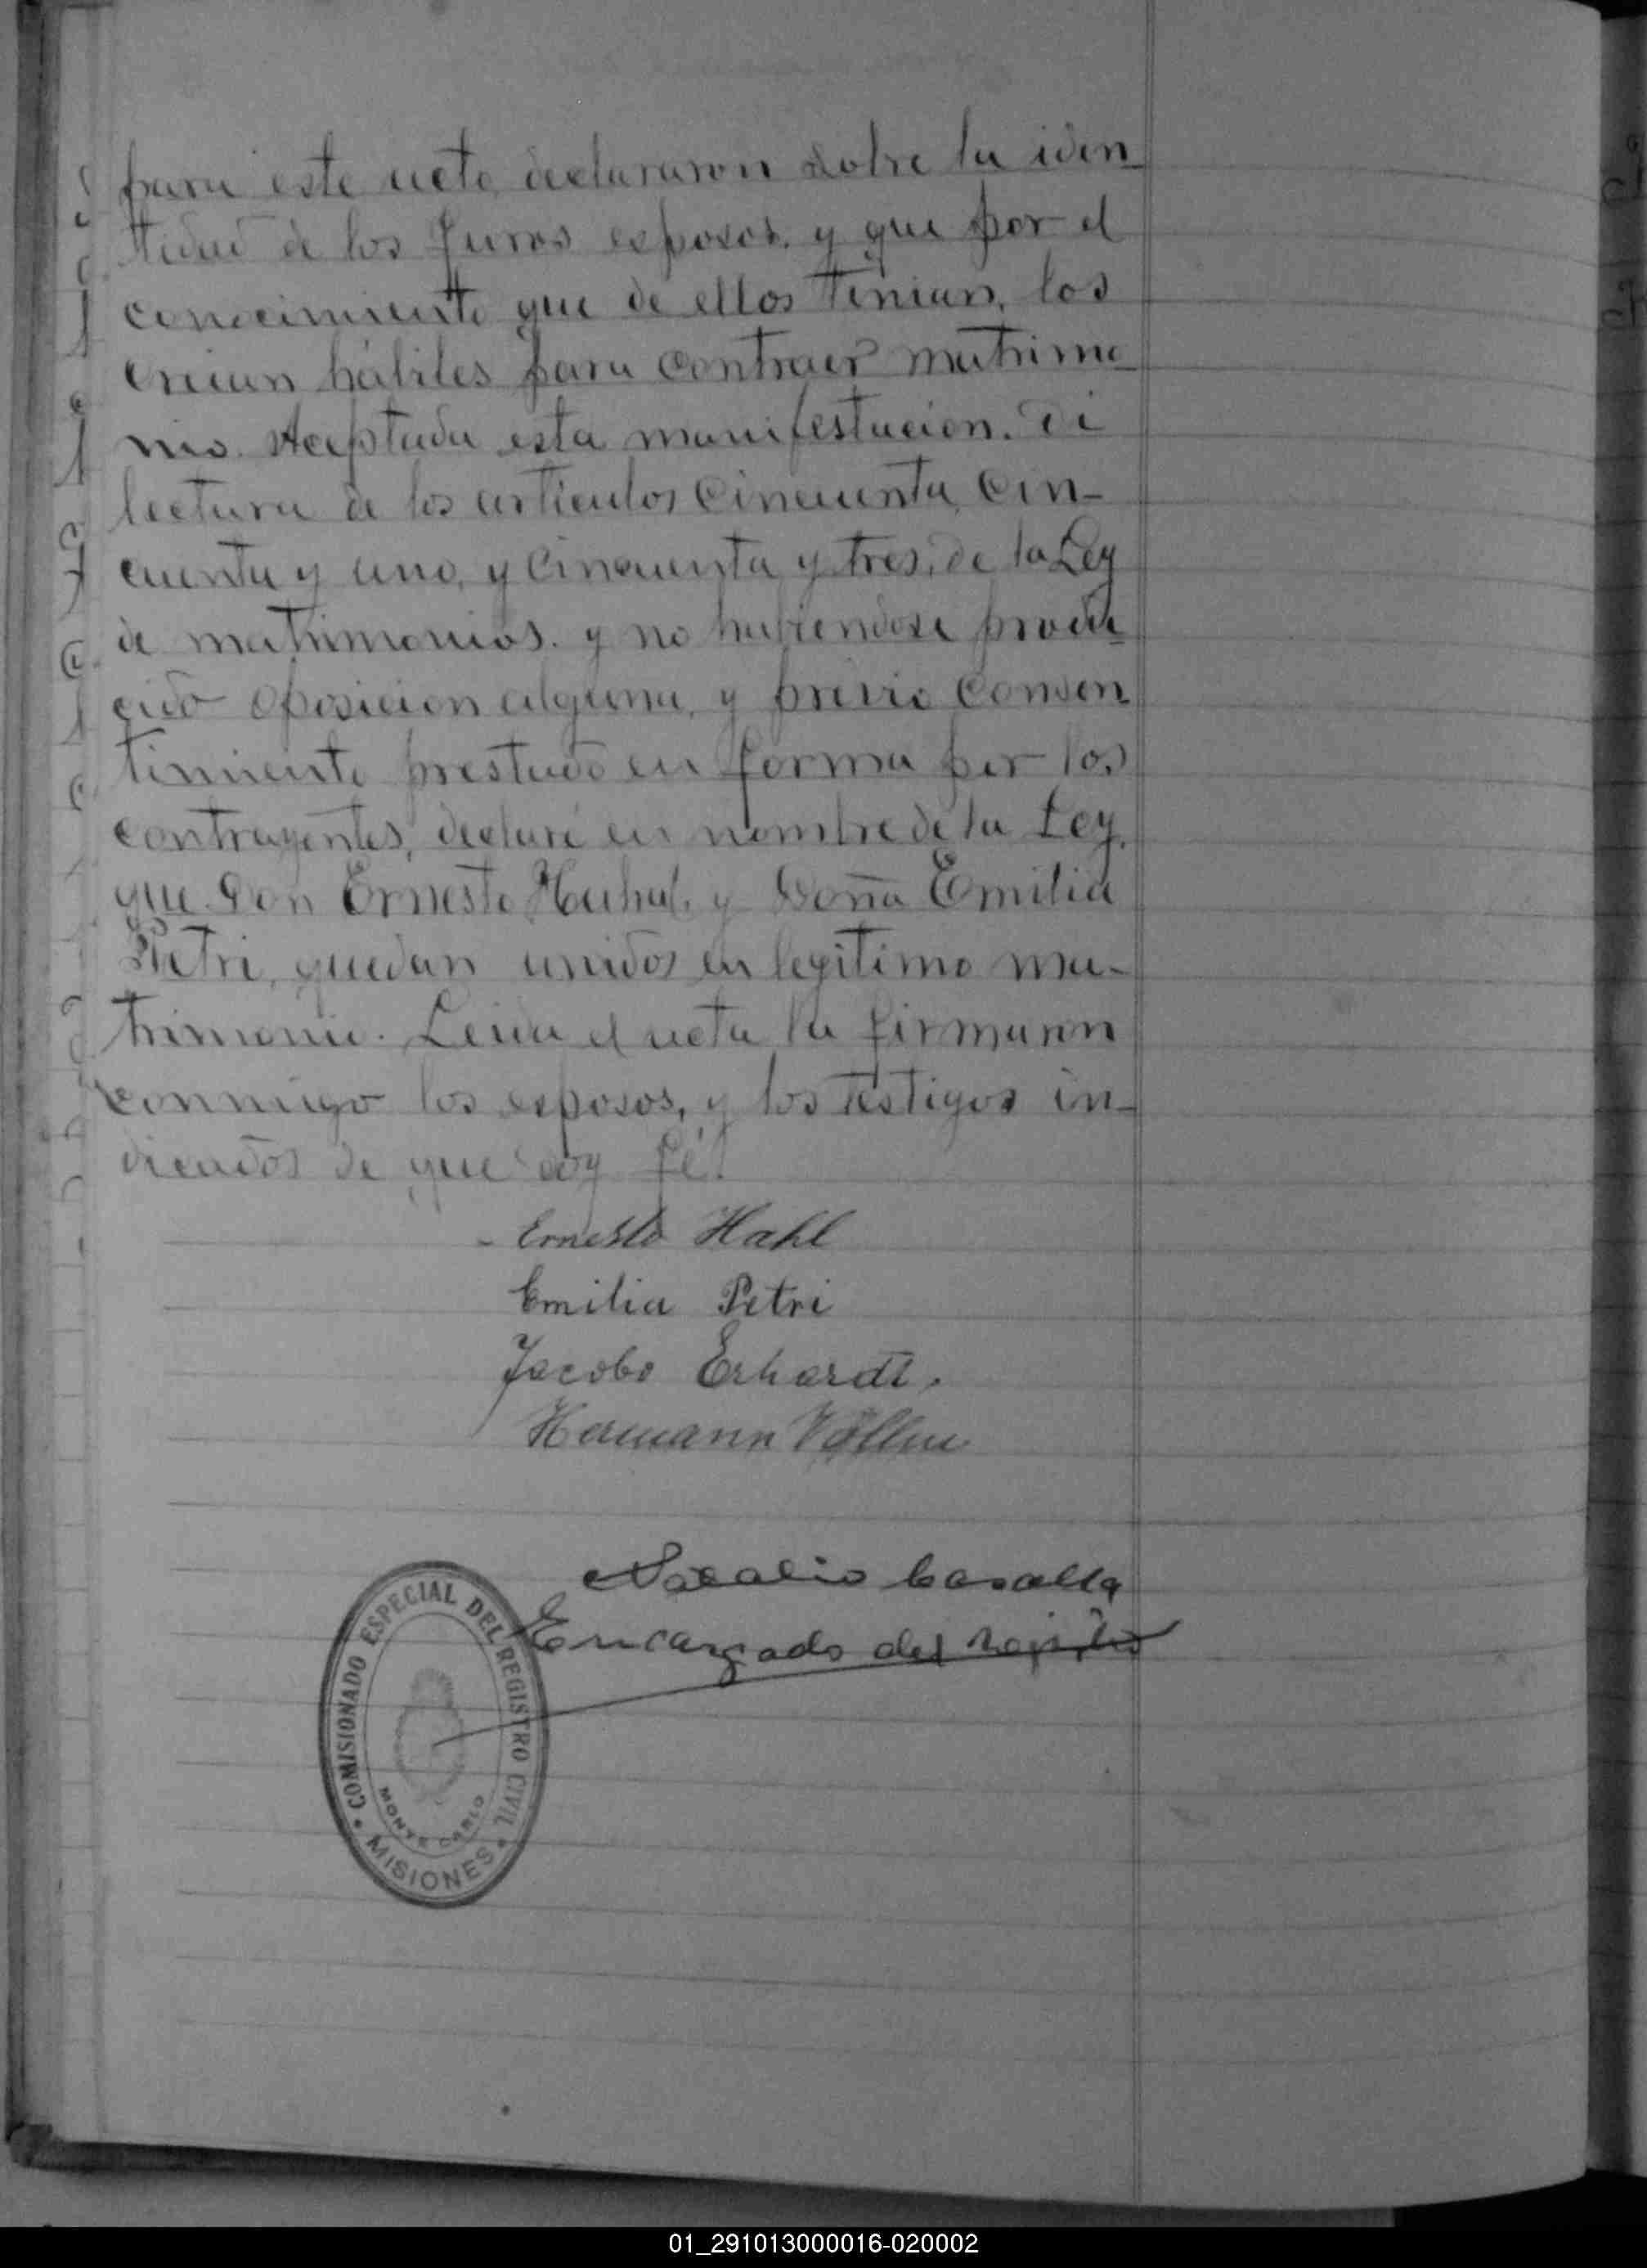 para este acto declararon sobre la iden
tidad de los futuros esposos. y que por el
conocimiento que de ellos tenian, los
creian hábiles para contraer matrimo
nio. Aceptada esta manifestacion. di
lectura de los articulos cincuenta, cin-
cuenta y uno, y cincuenta y tres, de la Ley
de matrimonios. y no habiendose produ
cido oposicion alguna, y previo consen
timiento prestado en forma por los
contrayentes, declaré en nombre de la Ley,
que Don Ernesto y Doña Emilia
Petri, quedan unidos en legitimo ma-
trimonio. Leida el acta la firmaron
conmigo los esposos, y los testigos in-
dicados de que doy fé.
Ernesto Hahl
Emilia Petri
Jacobo Erhardt.
Hermann
Encargado del
COMISIONADO ESPECIAL DEL REGISTRO CIVIL
MONTE CARLO
MISIONES
01_291013000016-020002